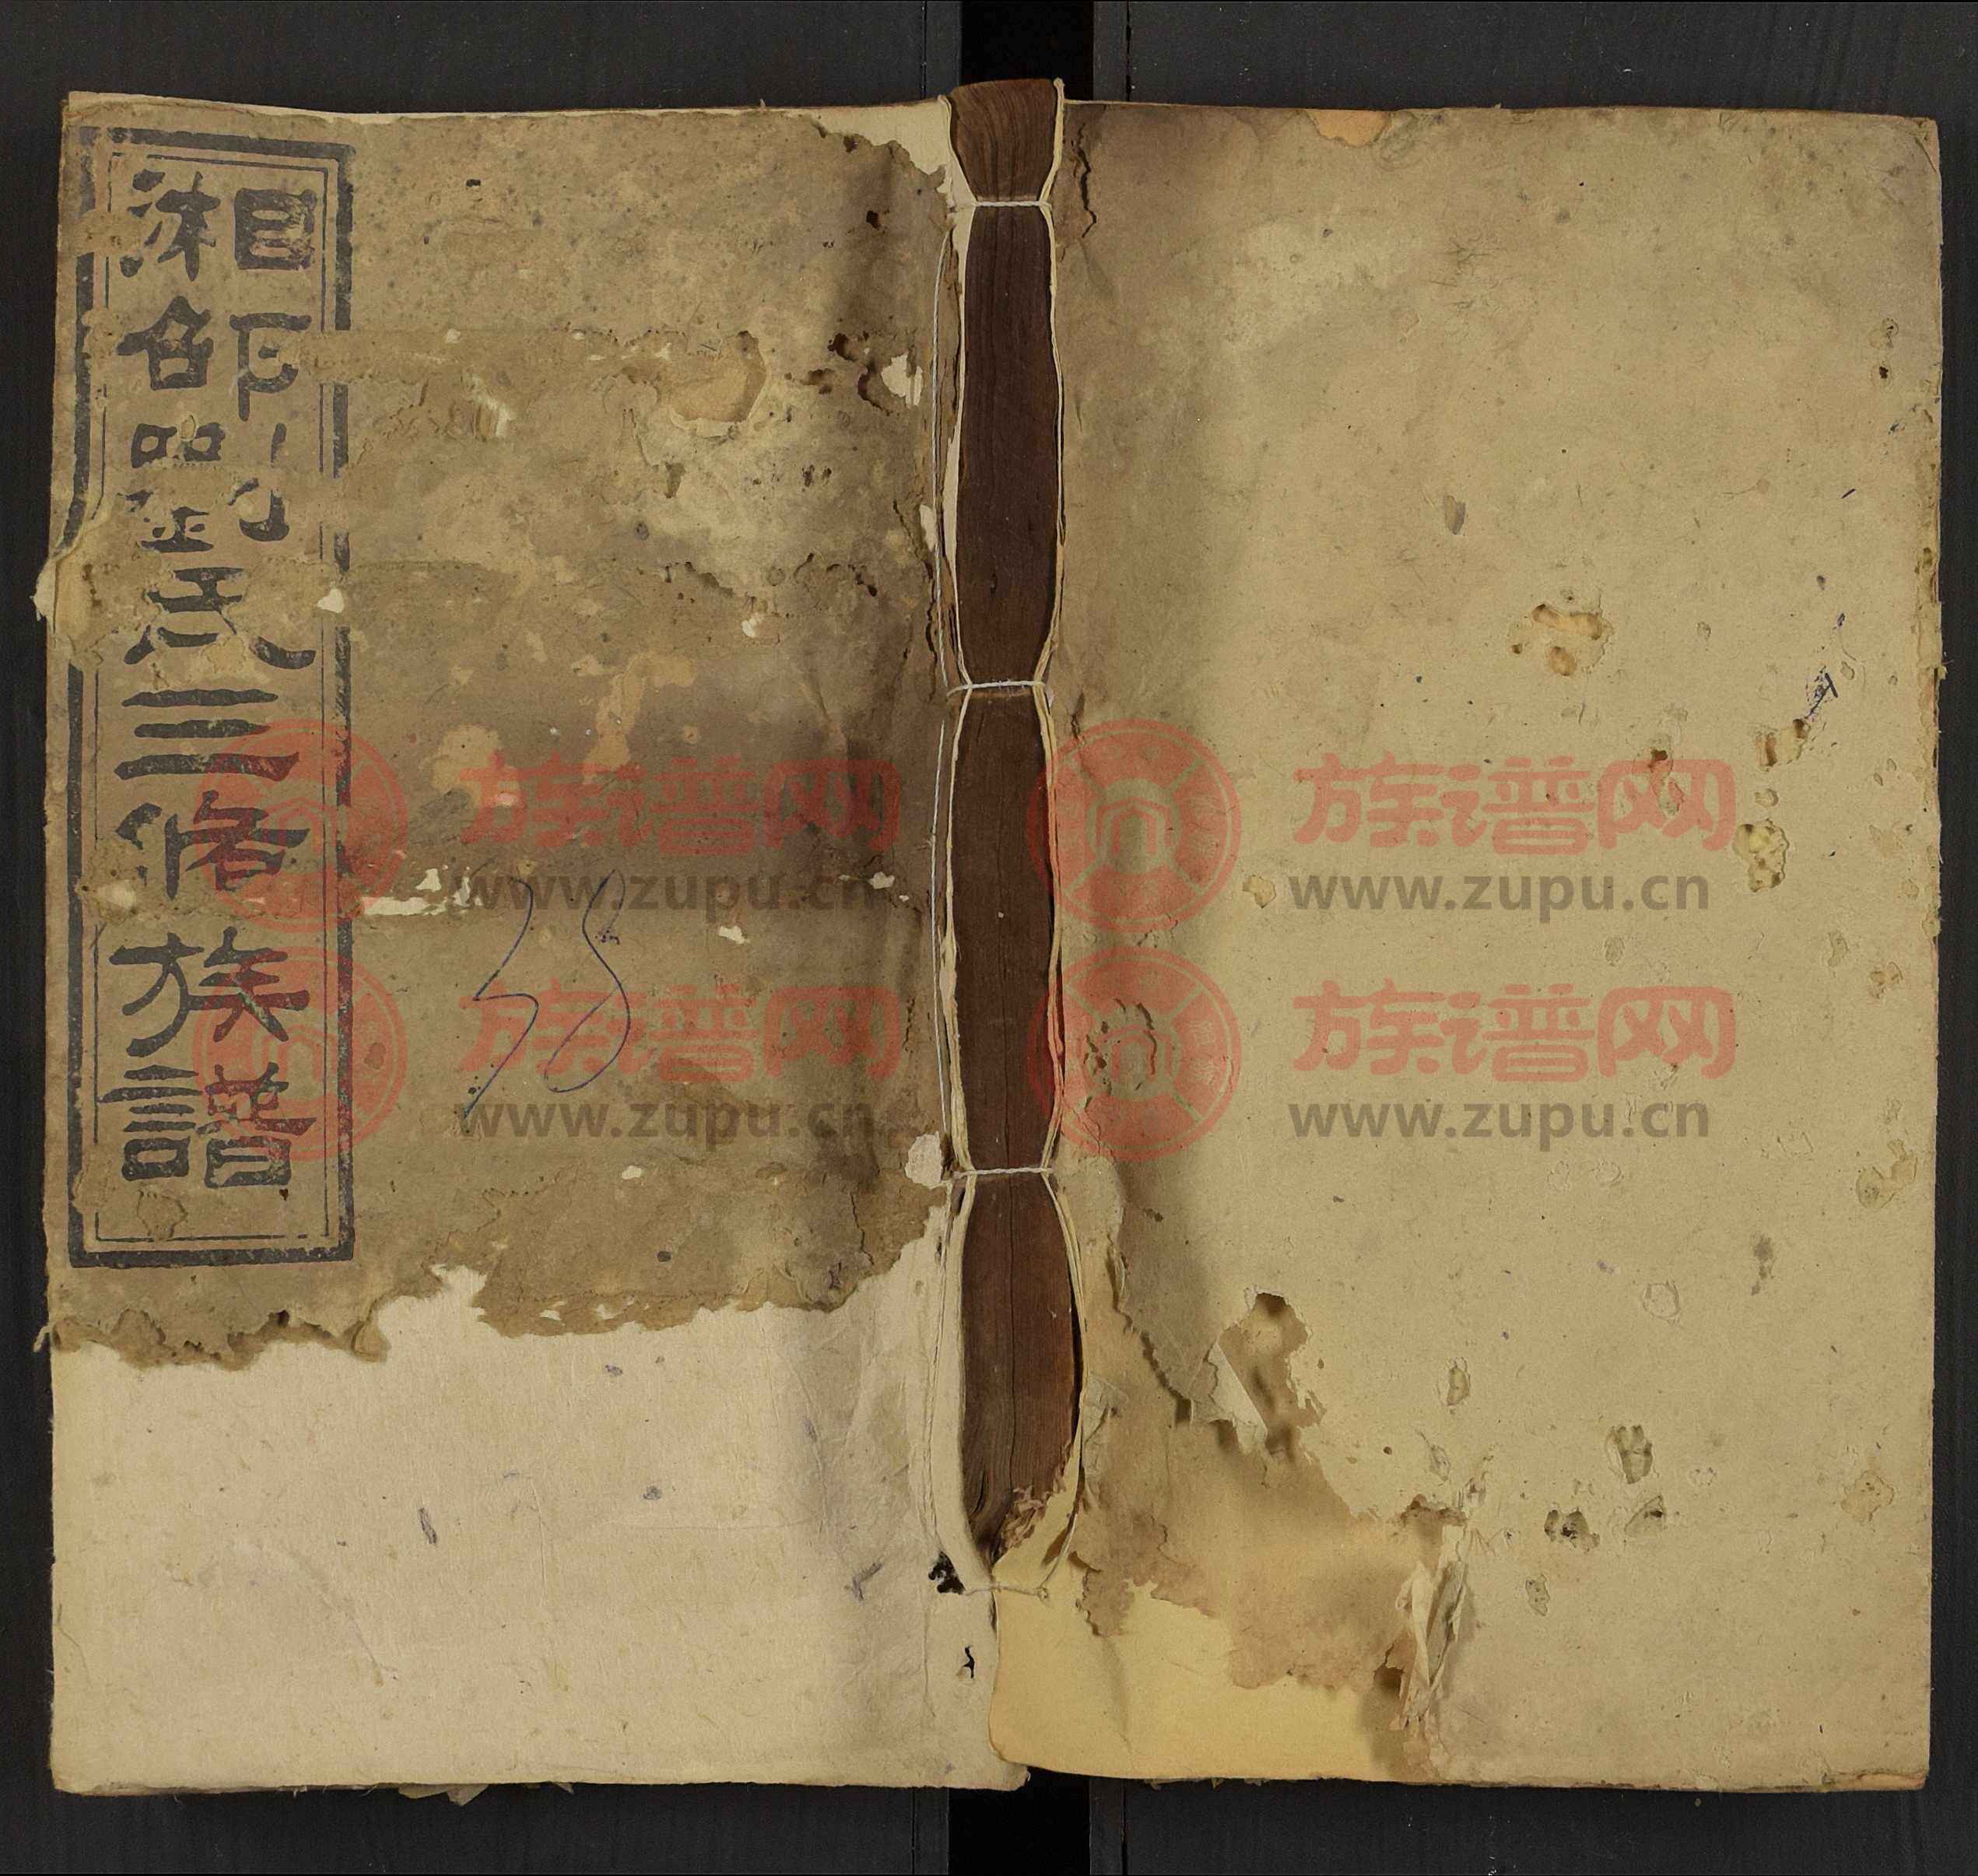 湘邵劉氏三修族譜
族谱网 族谱网
www.zupu.cn www.zupu.cn
族谱网 族谱网
www.zupu.cn www.zupu.cn